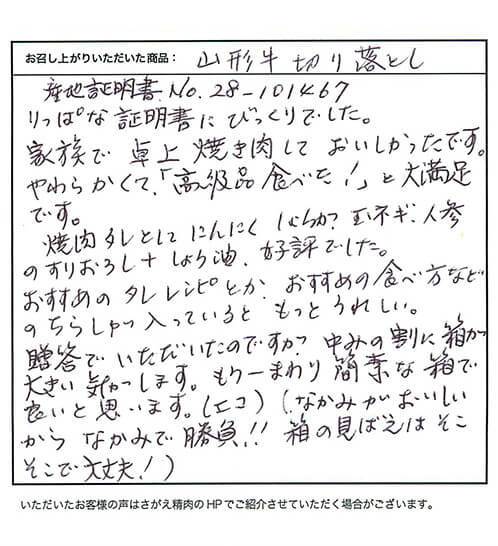 お召し上がりいただいた商品： 山形牛切り落とし
産地証明書 No.28-101467
りっぱな証明書にびっくりでした。
家族で卓上焼き肉して おいしかったです。
やわらかくて、「高級品食べた！」と大満足
です。
焼肉タレとして にんにく じゃがいも 玉ネギ、人参
のすりおろし＋しょう油、好評でした。
おすすめのタレレシピとか、おすすめの食べ方など
のちらしが入っていると もっとうれしい。
贈答でいただいたのですが、中みの割に箱が
大きい気がします。もう一まわり簡素な箱で
良いと思います。（エコ）（なかみがおいしい
から なかみで勝負！！箱の見ばえはそこ
そこで大丈夫！）
いただいたお客様の声はさがえ精肉のHPでご紹介させていただく場合がございます。